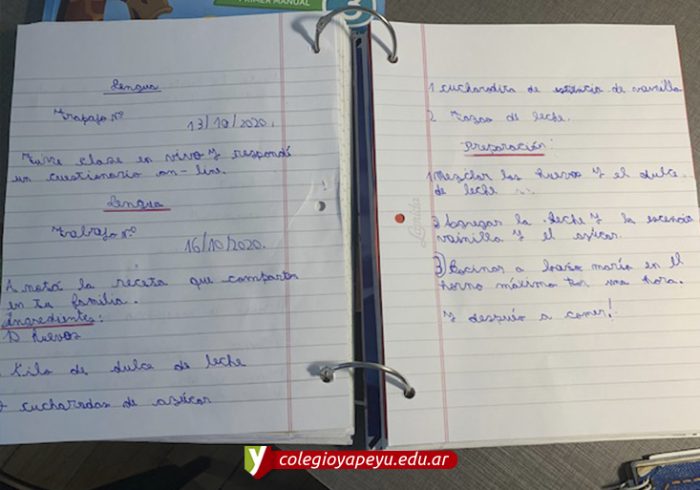 PRIMER MANUAL
3
Lengua
Trapajo Nº
13/10/2020.
Tuve clase en vivo y respondí
un cuestionario on-line.
Lengua
Trabajo Nº
16/10/2020.
Anotá la receta que compartas
en tu familia.
Ingredientes:
10 huevos
Kilo de dulce de leche
cucharadas de azúcar
1 cucharadita de esencia de vainilla
2 Tazas de leche.
Preparación
1 Mezclar los huevos y el dulce
de leche
2 Agregar la leche y la escencia
vainilla y el azúcar.
3) Cocinar a baño maría en el
horno máximo por una hora.
y después a comer!
Lamida
y colegioyapeyu.edu.ar